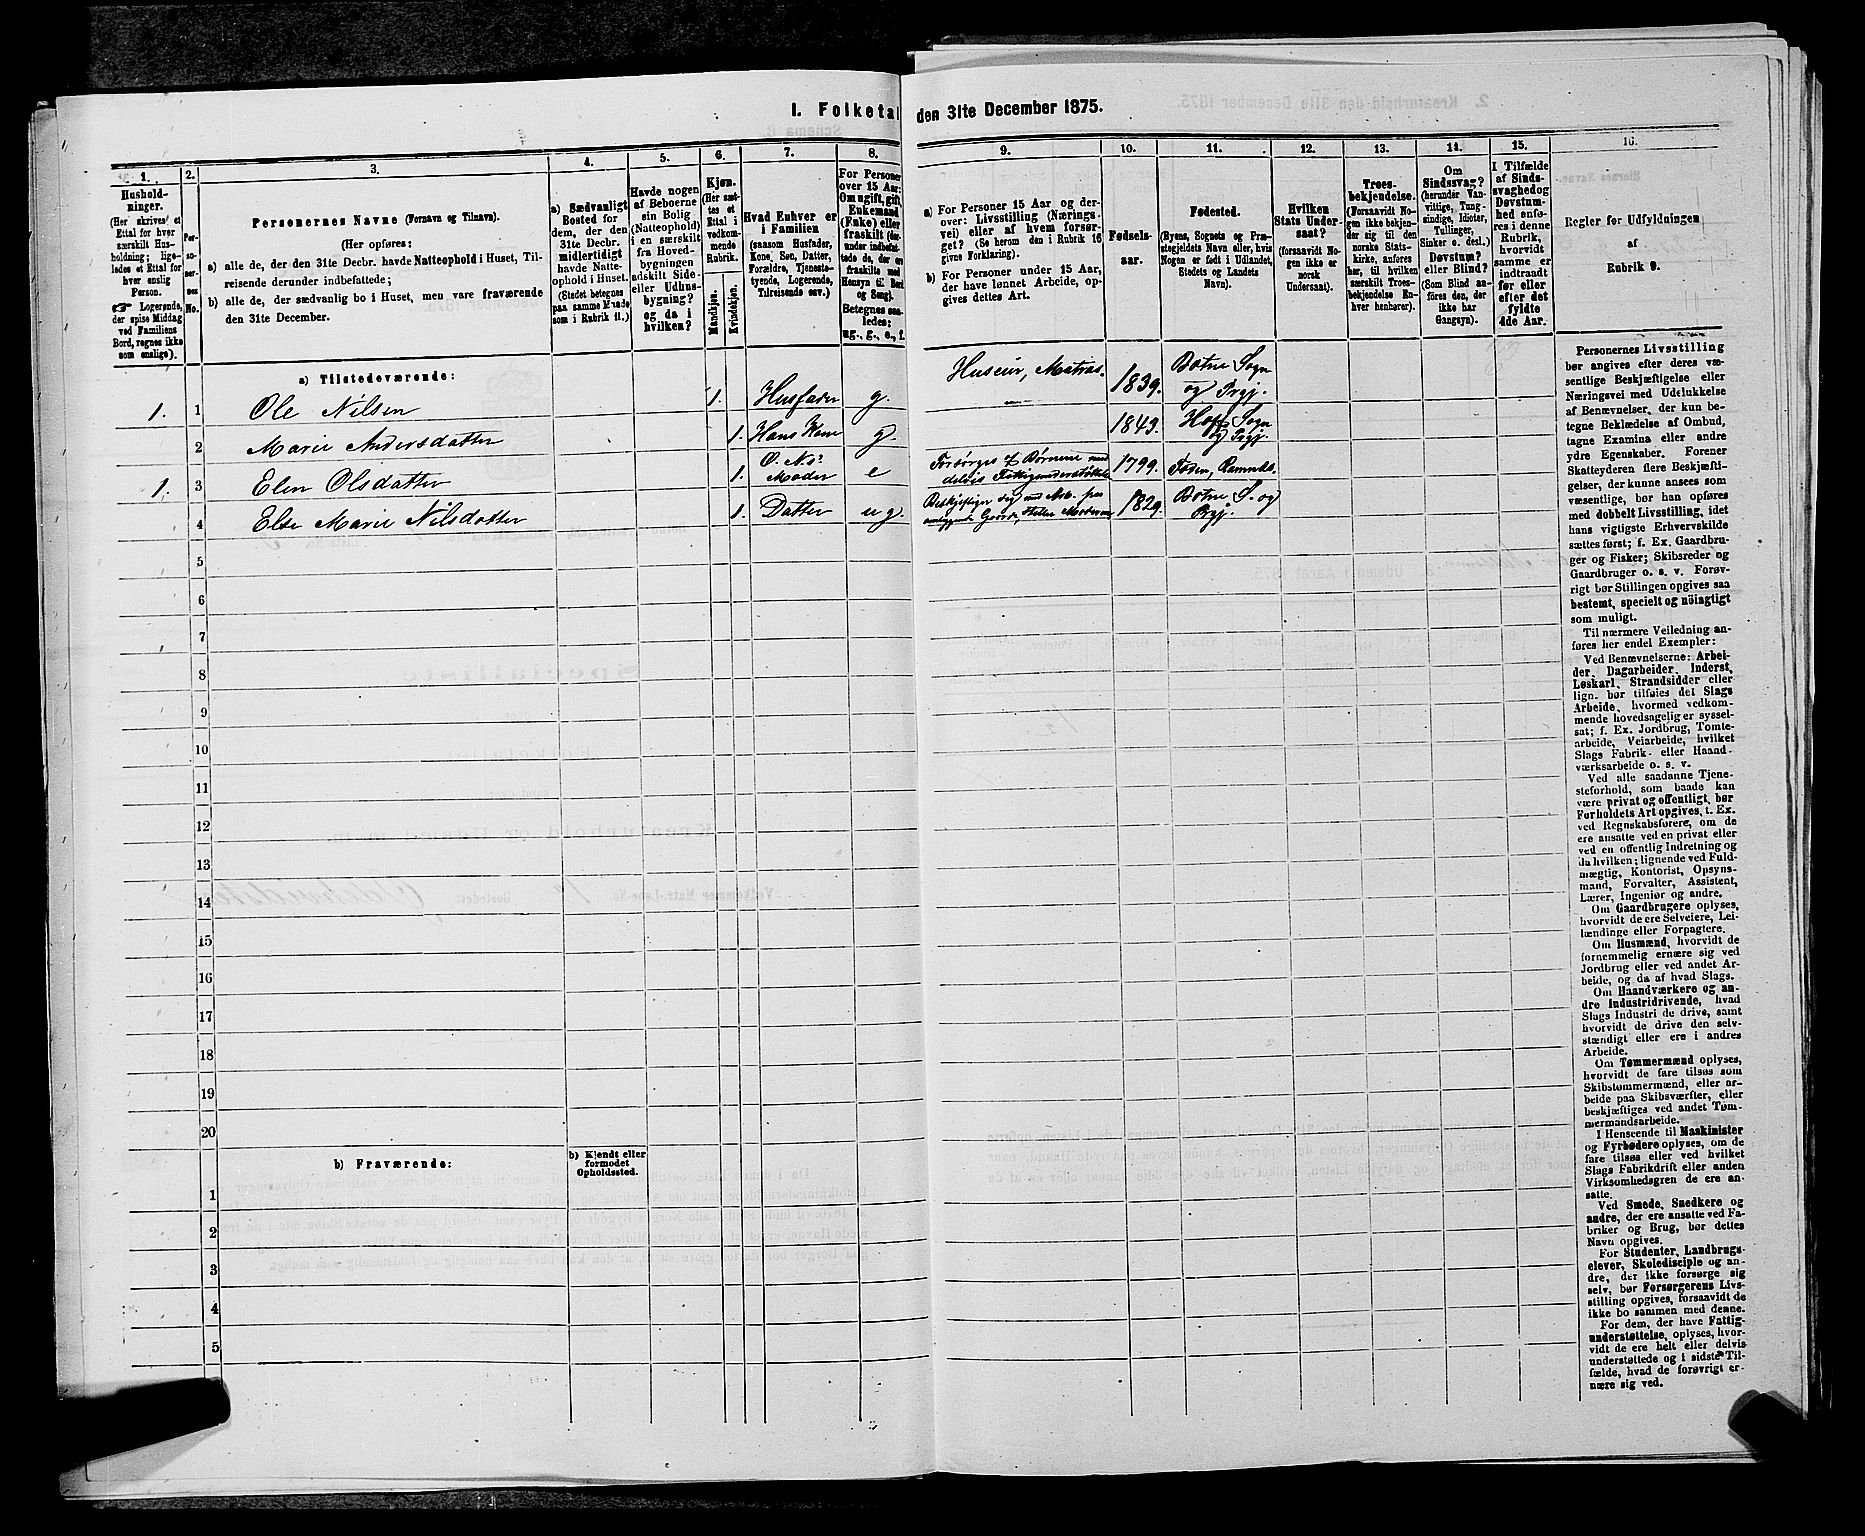 I. Folketal
den 31te December 1875.
1.
2.
3.
4.
5.
6.
7.
8.
9.
10.
11.
12.
13.
14.
15.
16.
Hushold-
ninger.
(Her skrives et
Ettal for hver
særskilt Hus-
holdning; lige-
ledes et Ettal for
hver enslig
Person.
☞ Logerende,
der spise Middag
ved Familiens
Bord, regnes ikke
som enslige).
Per-
so-
ner-
nes
No.
Personernes Navne (Fornavn og Tilnavn).
(Her opføres:
a) alle de, der den 31te Decbr. havde Natteophold i Huset, Til-
reisende derunder indbefattede;
b) alle de, der sædvanlig bo i Huset, men vare fraværende
den 31te December.
a) Sædvanligt
Bosted for
dem, der den
31te Decbr.
midlertidigt
havde Natte-
ophold i Huset.
(Stedet betegnes
paa samme Maade
som i Rubrik 11.)
Havde nogen
af Beboerne
sin Bolig
(Natteophold)
i en særskilt
fra Hoved-
bygningen
adskilt Side-
eller Udhus-
bygning?
og da i
hvilken?
Kjøn.
(Her sæt-
tes et
Ettal i
vedkom-
mende
Rubrik.
Mandkjøn.
Kvindekjøn.
Hvad Enhver er
i Familien
(saasom Husfader,
Kone, Søn, Datter,
Forældre, Tjeneste-
tyende, Logerende,
Tilreisende osv.)
For Personer
over 15 Aar:
Om ugift, gift,
Enkemand
(Enke) eller
fraskilt (der-
under indbefat-
tede de, der ere
fraskilte med
Hensyn til Bord
og Seng).
Betegnes saa-
ledes:
ug., g., e., f.
a) For Personer 15 Aar og der-
over: Livsstilling (Nærings-
vei) eller af hvem forsør-
get? (Se herom den i Rubrik 16
givne Forklaring).
b) For Personer under 15 Aar,
der have lønnet Arbeide, op-
gives dettes Art.
Fødsels-
aar.
Fødested.
(Byens, Sognets og Præ-
stegjeldets Navn eller, hvis
Nogen er født i Udlandet,
Stedets og Landets
Navn).
Hvilken
Stats Under-
saat?
(forsaavidt No-
gen ikke er
norsk
Undersaat).
Troes-
bekjendelse.
(Forsaavidt No-
gen ikke bekjen-
der sig til den
norske Stats-
kirke, anføres
her, til hvilken
særskilt Troes-
bekjendelse En-
hver henhører).
Om
Sindssvag?
(herunder Van-
vittige, Tung-
sindige, Idioter,
Tullinger,
Sinker o. desl.)
Døvstum?
eller Blind?
(Som Blind an-
føres den, der
ikke har
Gangsyn).
I Tilfælde
af Sinds-
svaghed og
Døvstum-
hed anfø-
res i denne
Rubrik,
hvorvidt
samme er
indtraadt
før eller
efter det
fyldte
4de Aar.
Regler for Udfyldningen
af
Rubrik 9.
a) Tilstedeværende:
1. 1 Ole Nilsen 1. Husfader g. Huseier, Matros. 1839. Botne Sogn og Prgj.
2 Marie Andersdatter 1. Hans Kone g. 1843. Sogn og Prgj.
1. 3 Elen Olsdatter 1. O. N.s Moder e Forsørges af Børnene med delvis Fattigunderstøttelse 1799.
4 Else Marie Nilsdatter 1. Datter ug Beskjæftiger sig med Arb. paa omliggende Gaarde, 1829. Botne S. og Prgj.
5
6
7
8
9
10
11
12
13
14
15
16
17
18
19
20
b) Fraværende:
b) Kjendt eller
formodet
Opholdssted.
1
2
3
4
5
Personernes Livsstilling
bør angives efter deres væ-
sentlige Beskjæftigelse eller
Næringsvei med Udelukkelse
af Benævnelser, der kun be-
tegne Beklædelse af Ombud,
tagne Examina eller andre
ydre Egenskaber. Forener
Skatteyderen flere Beskjæfti-
gelser, der kunne ansees som
væsentlige, bør han opføres
med dobbelt Livsstilling, idet
hans vigtigste Erhvervskilde
sættes først; f. Ex. Gaardbru-
ger og Fisker; Skibsreder og
Gaardbruger o. s. v. Forøv-
rigt bør Stillingen opgives saa
bestemt, specielt og nöiagtigt
som muligt.
Til nærmere Veiledning an-
føres her endel Exempler:
Ved Benævnelserne: Arbei-
der, Dagarbeider, Inderst,
Løskarl, Strandsidder eller
lign. bør tilføies det Slags
Arbeide, hvormed vedkom-
mende hovedsagelig er syssel-
sat; f. Ex. Jordbrug, Tomte-
arbeide, Veiarbeide, hvilket
Slags Fabrik- eller Haand-
værksarbeide o. s. v.
Ved alle saadanne Tjene-
steforhold, som baade kan
være privat og offentligt, bør
Forholdets Art opgives, t. Ex.
ved Regnskabsførere, om de
ere ansatte ved en privat eller
ved en offentlig Indretning og
da hvilken; lignende ved Fuld-
mægtig, Kontorist, Opsyns-
mand, Forvalter, Assistent,
Lærer, Ingeniør og andre.
Om Gaardbrugere oplyses,
hvorvidt de ere Selveiere, Lei-
lændinge eller Forpagtere.
Om Husmænd, hvorvidt de
fornemmelig ernære sig ved
Jordbrug eller ved andet Ar-
beide, og da af hvad Slags.
Om Haandværkere og an-
dre Industridrivende, hvad
Slags Industri de drive, samt
hvorvidt de drive den selv-
stændigt eller ere i andres
Arbeide.
Om Tømmermænd oplyses,
hvorvidt de fare tilsøs som
Skibstømmermænd, eller ar-
beide paa Skibsværfter, eller
beskjæftiges ved andet Tøm-
mermandsarbeide.
I Henseende til Maskinister
og Fyrbødere oplyses, om de
fare tilsøs eller ved hvilket
Slags Fabrikdrift eller anden
Virksomhedsgren de ere an-
satte.
Ved Smede, Snedkere og
andre, der ere ansatte ved Fa-
briker og Brug, bør dettes
Navn opgives.
For Studenter, Landbrugs-
elever, Skoledisciple og an-
dre, der ikke forsørge sig
selv, bør Forsørgerens Livs-
stilling opgives, forsaavidt de
ikke bo sammen med denne.
For dem, der have Fattig-
understøttelse, oplyses, hvor-
vidt de ere helt eller delvis
understøttede og i sidste Til-
fælde, hvad de forøvrigt er-
nære sig ved.